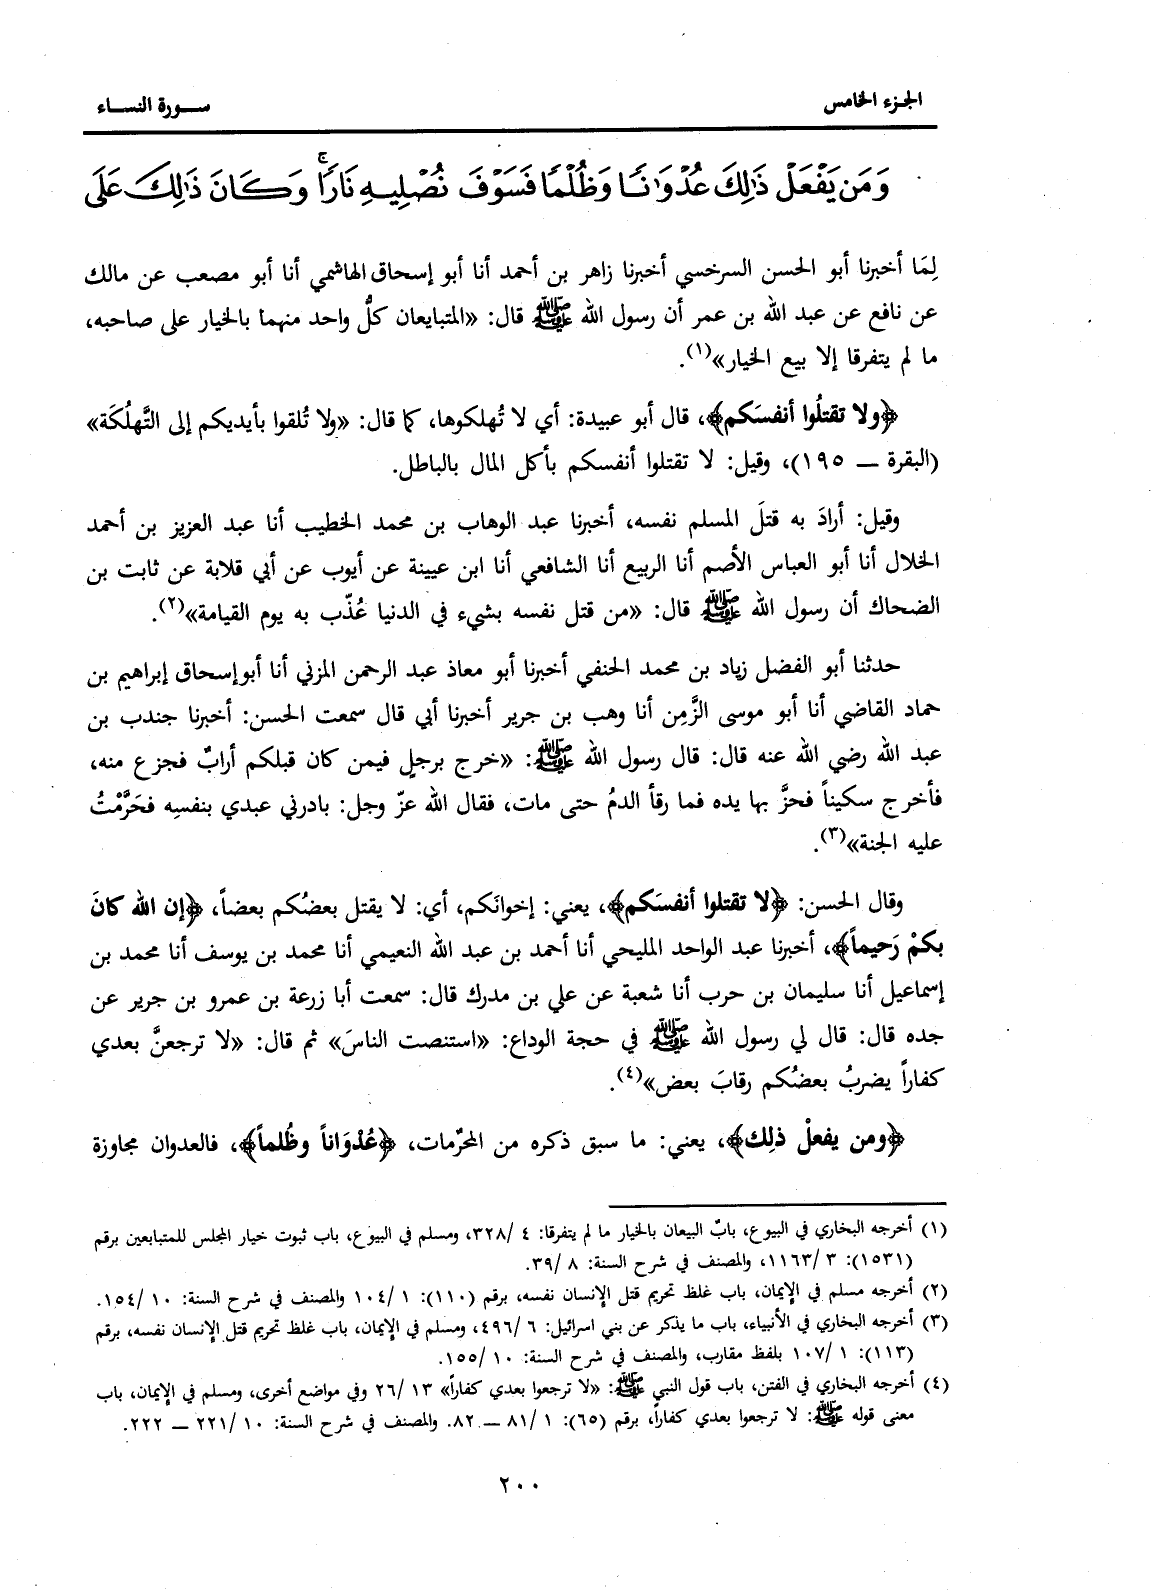 الجزء الخامس
سورة النساء
وَمَن يَفْعَلْ ذَٰلِكَ عُدْوَٰنًا وَظُلْمًا فَسَوْفَ نُصْلِيهِ نَارًا ۚ وَكَانَ ذَٰلِكَ عَلَى
لِمَا أخبرنا أبو الحسن السرخسي أخبرنا زاهر بن أحمد أنا أبو إسحاق الهاشمي أنا أبو مصعب عن مالك
عن نافع عن عبد الله بن عمر أن رسول الله ﷺ قال: «المتبايعان كلُّ واحد منهما بالخيار على صاحبه،
ما لم يتفرقا إلا بيع الخيار»(١).
﴿ولا تقتلُوا أنفسَكم﴾، قال أبو عبيدة: أي لا تُهلكوها، كما قال: «ولا تُلقوا بأيديكم إلى التَّهلُكَة»
(البقرة ــ ١٩٥)، وقيل: لا تقتلوا أنفسكم بأكل المال بالباطل.
وقيل: أرادَ به قتلَ المسلم نفسه، أخبرنا عبد الوهاب بن محمد الخطيب أنا عبد العزيز بن أحمد
الخلال أنا أبو العباس الأصم أنا الربيع أنا الشافعي أنا ابن عيينة عن أيوب عن أبي قلابة عن ثابت بن
الضحاك أن رسول الله ﷺ قال: «من قتل نفسه بشيء في الدنيا عُذّب به يوم القيامة»(٢).
حدثنا أبو الفضل زياد بن محمد الحنفي أخبرنا أبو معاذ عبد الرحمن المزني أنا أبو إسحاق إبراهيم بن
حماد القاضي أنا أبو موسى الزَّمِن أنا وهب بن جرير أخبرنا أبي قال سمعت الحسن: أخبرنا جندب بن
عبد الله رضي الله عنه قال: قال رسول الله ﷺ: «خرج برجلٍ فيمن كان قبلكم أرابٌ فجزع منه،
فأخرج سكيناً فحزَّ بها يده فما رقأ الدمُ حتى مات، فقال الله عزّ وجل: بادرني عبدي بنفسِه فحَرَّمْتُ
عليه الجنة»(٣).
وقال الحسن: ﴿لا تقتلوا أنفسَكم﴾، يعني: إخوانَكم، أي: لا يقتل بعضُكم بعضاً، ﴿إن الله كانَ
بكمْ رَحيماً﴾، أخبرنا عبد الواحد المليحي أنا أحمد بن عبد الله النعيمي أنا محمد بن يوسف أنا محمد بن
إسماعيل أنا سليمان بن حرب أنا شعبة عن علي بن مدرك قال: سمعت أبا زرعة بن عمرو بن جرير عن
جده قال: قال لي رسول الله ﷺ في حجة الوداع: «استنصت الناسَ» ثم قال: «لا ترجعنَّ بعدي
كفاراً يضربُ بعضُكم رقابَ بعض»(٤).
﴿ومن يفعلْ ذلِك﴾، يعني: ما سبق ذكره من المحرّمات، ﴿عُدْوَاناً وظُلماً﴾، فالعدوان مجاوزة
(١) أخرجه البخاري في البيوع، بابٌ البيعان بالخيار ما لم يتفرقا: ٤ /٣٢٨، ومسلم في البيوع، باب ثبوت خيار المجلس للمتبايعين برقم
(١٥٣١): ٣ /١١٦٣، والمصنف في شرح السنة: ٨ /٣٩.
(٢) أخرجه مسلم في الإيمان، باب غلظ تحريم قتل الإنسان نفسه، برقم (١١٠): ١ /١٠٤ والمصنف في شرح السنة: ١٠ /١٥٤.
(٣) أخرجه البخاري في الأنبياء، باب ما يذكر عن بني اسرائيل: ٦ /٤٩٦، ومسلم في الإيمان، باب غلظ تحريم قتل الإنسان نفسه، برقم
(١١٣): ١ /١٠٧ بلفظ مقارب، والمصنف في شرح السنة: ١٠ /١٥٥.
(٤) أخرجه البخاري في الفتن، باب قول النبي ﷺ: «لا ترجعوا بعدي كفاراً» ١٣ /٢٦ وفي مواضع أخرى، ومسلم في الإيمان، باب
معنى قوله ﷺ: لا ترجعوا بعدي كفاراً، برقم (٦٥): ١ /٨١ ــ ٨٢. والمصنف في شرح السنة: ١٠ /٢٢١ ــ ٢٢٢.
٢٠٠